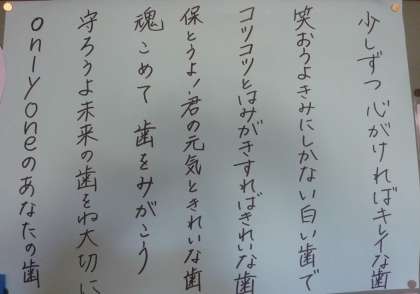 少しずつ心がければキレイな歯
笑おうよきみにしかない白い歯で
コツコツとはみがきすればきれいな歯
保とうよ!君の元気ときれいな歯
魂こめて歯をみがこう
守ろうよ未来の歯をね大切に
onlyoneのあなたの歯